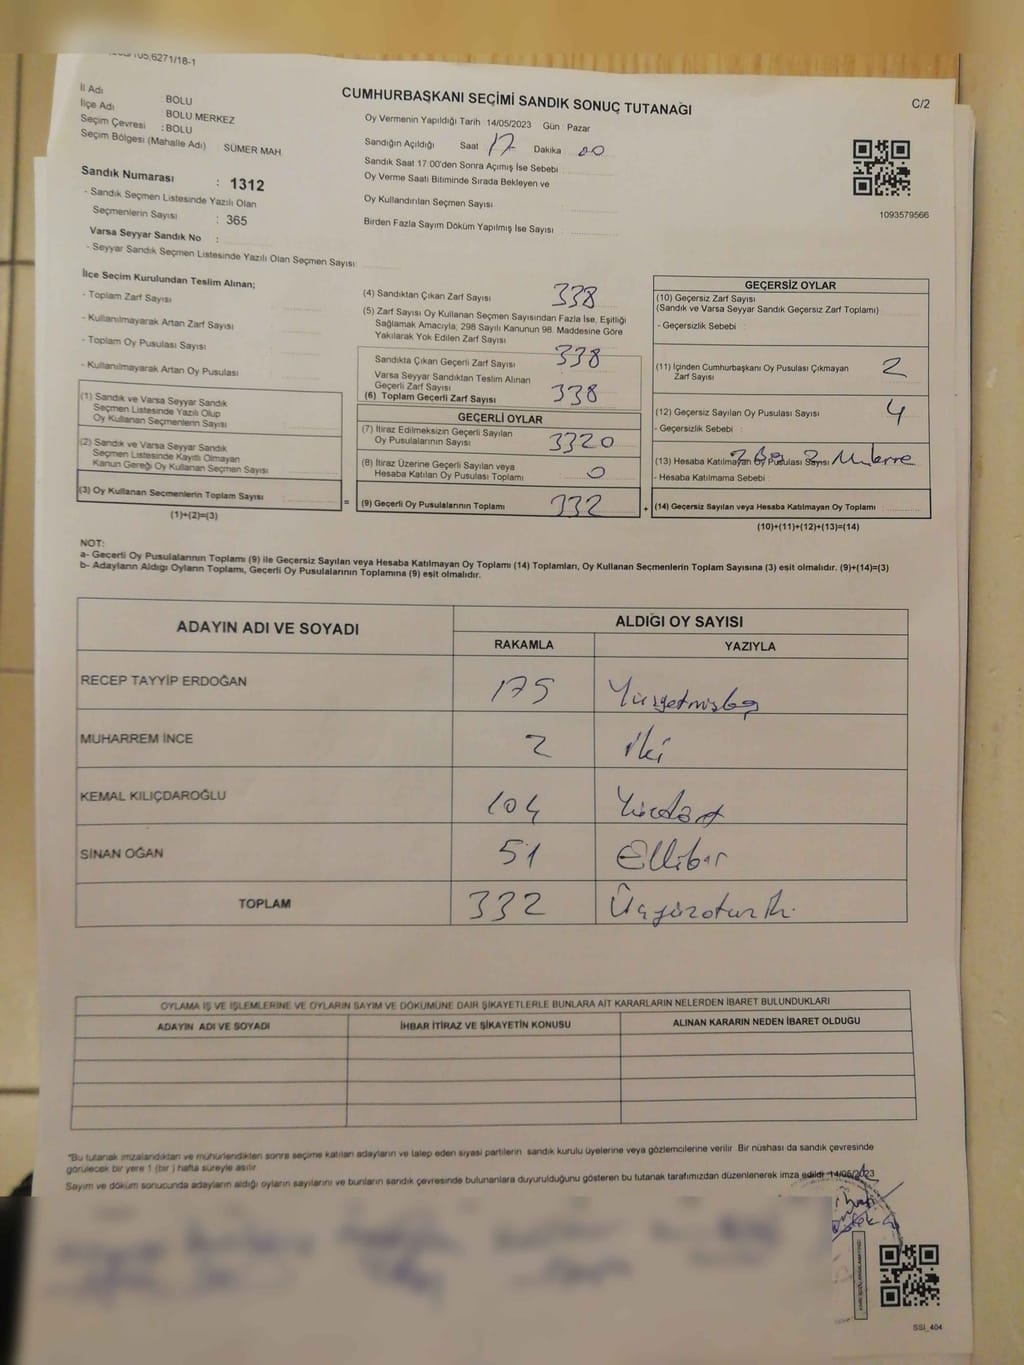 6271/18-1
İl Adı
BOLU
İlçe Adı
BOLU MERKEZ
Seçim Çevresi : BOLU
Seçim Bölgesi (Mahalle Adı) SÜMER MAH.
Sandık Numarası : 1312
- Sandık Seçmen Listesinde Yazılı Olan
Seçmenlerin Sayısı : 365
Varsa Seyyar Sandık No :
- Seyyar Sandık Seçmen Listesinde Yazılı Olan Seçmen Sayısı:
CUMHURBAŞKANI SEÇİMİ SANDIK SONUÇ TUTANAĞI
C/2
Oy Vermenin Yapıldığı Tarih 14/05/2023 Gün Pazar
Sandığın Açıldığı Saat 17 Dakika 00
Sandık Saat 17:00'den Sonra Açımış İse Sebebi
Oy Verme Saati Bitiminde Sırada Bekleyen ve
Oy Kullandırılan Seçmen Sayısı
Birden Fazla Sayım Döküm Yapılmış İse Sayısı
1093579566
İlçe Seçim Kurulundan Teslim Alınan;
- Toplam Zarf Sayısı
- Kullanılmayarak Artan Zarf Sayısı
- Toplam Oy Pusulası Sayısı
- Kullanılmayarak Artan Oy Pusulası
(1) Sandık ve Varsa Seyyar Sandık
Seçmen Listesinde Yazılı Olup
Oy Kullanan Seçmenlerin Sayısı
(2) Sandık ve Varsa Seyyar Sandık
Seçmen Listesinde Kayıtlı Olmayan
Kanun Gereği Oy Kullanan Seçmen Sayısı
(3) Oy Kullanan Seçmenlerin Toplam Sayısı
(1)+(2)=(3)
=
(4) Sandıktan Çıkan Zarf Sayısı 338
(5) Zarf Sayısı Oy Kullanan Seçmen Sayısından Fazla İse, Eşitliği
Sağlamak Amacıyla, 298 Sayılı Kanunun 98. Maddesine Göre
Yakılarak Yok Edilen Zarf Sayısı
Sandıkta Çıkan Geçerli Zarf Sayısı 338
Varsa Seyyar Sandıktan Teslim Alınan
Geçerli Zarf Sayısı
(6) Toplam Geçerli Zarf Sayısı 338
GEÇERLİ OYLAR
(7) İtiraz Edilmeksizin Geçerli Sayılan
Oy Pusulalarının Sayısı 3320
(8) İtiraz Üzerine Geçerli Sayılan veya
Hesaba Katılan Oy Pusulası Toplamı 0
(9) Geçerli Oy Pusulalarının Toplamı 332
+
GEÇERSİZ OYLAR
(10) Geçersiz Zarf Sayısı
(Sandık ve Varsa Seyyar Sandık Geçersiz Zarf Toplamı)
- Geçersizlik Sebebi :
(11) İçinden Cumhurbaşkanı Oy Pusulası Çıkmayan
Zarf Sayısı 2
(12) Geçersiz Sayılan Oy Pusulası Sayısı 4
- Geçersizlik Sebebi :
(13) Hesaba Katılmayan Oy Pusulası Sayısı
- Hesaba Katılmama Sebebi :
(14) Geçersiz Sayılan veya Hesaba Katılmayan Oy Toplamı
(10)+(11)+(12)+(13)=(14)
NOT:
a- Geçerli Oy Pusulalarının Toplamı (9) ile Geçersiz Sayılan veya Hesaba Katılmayan Oy Toplamı (14) Toplamları, Oy Kullanan Seçmenlerin Toplam Sayısına (3) eşit olmalıdır. (9)+(14)=(3)
b- Adayların Aldığı Oyların Toplamı, Geçerli Oy Pusulalarının Toplamına (9) eşit olmalıdır.
ADAYIN ADI VE SOYADI
ALDIĞI OY SAYISI
RAKAMLA YAZIYLA
RECEP TAYYİP ERDOĞAN 175 Yüzyetmişbeş
MUHARREM İNCE 2 İki
KEMAL KILIÇDAROĞLU 104 Yüzdört
SİNAN OĞAN 51 Ellibir
TOPLAM 332 Üçyüzotuziki
OYLAMA İŞ VE İŞLEMLERİNE VE OYLARIN SAYIM VE DÖKÜMÜNE DAİR ŞİKAYETLERLE BUNLARA AİT KARARLARIN NELERDEN İBARET BULUNDUKLARI
ADAYIN ADI VE SOYADI İHBAR İTİRAZ VE ŞİKAYETİN KONUSU ALINAN KARARIN NEDEN İBARET OLDUĞU
*Bu tutanak imzalandıktan ve mühürlendikten sonra seçime katılan adayların ve talep eden siyasi partilerin sandık kurulu üyelerine veya gözlemcilerine verilir. Bir nüshası da sandık çevresinde
görülecek bir yere 1 (bir) hafta süreyle asılır.
Sayım ve döküm sonucunda adayların aldığı oyların sayılarını ve bunların sandık çevresinde bulunanlara duyurulduğunu gösteren bu tutanak tarafımızdan düzenlenerek imza edildi. 14/05/2023
SSI_404